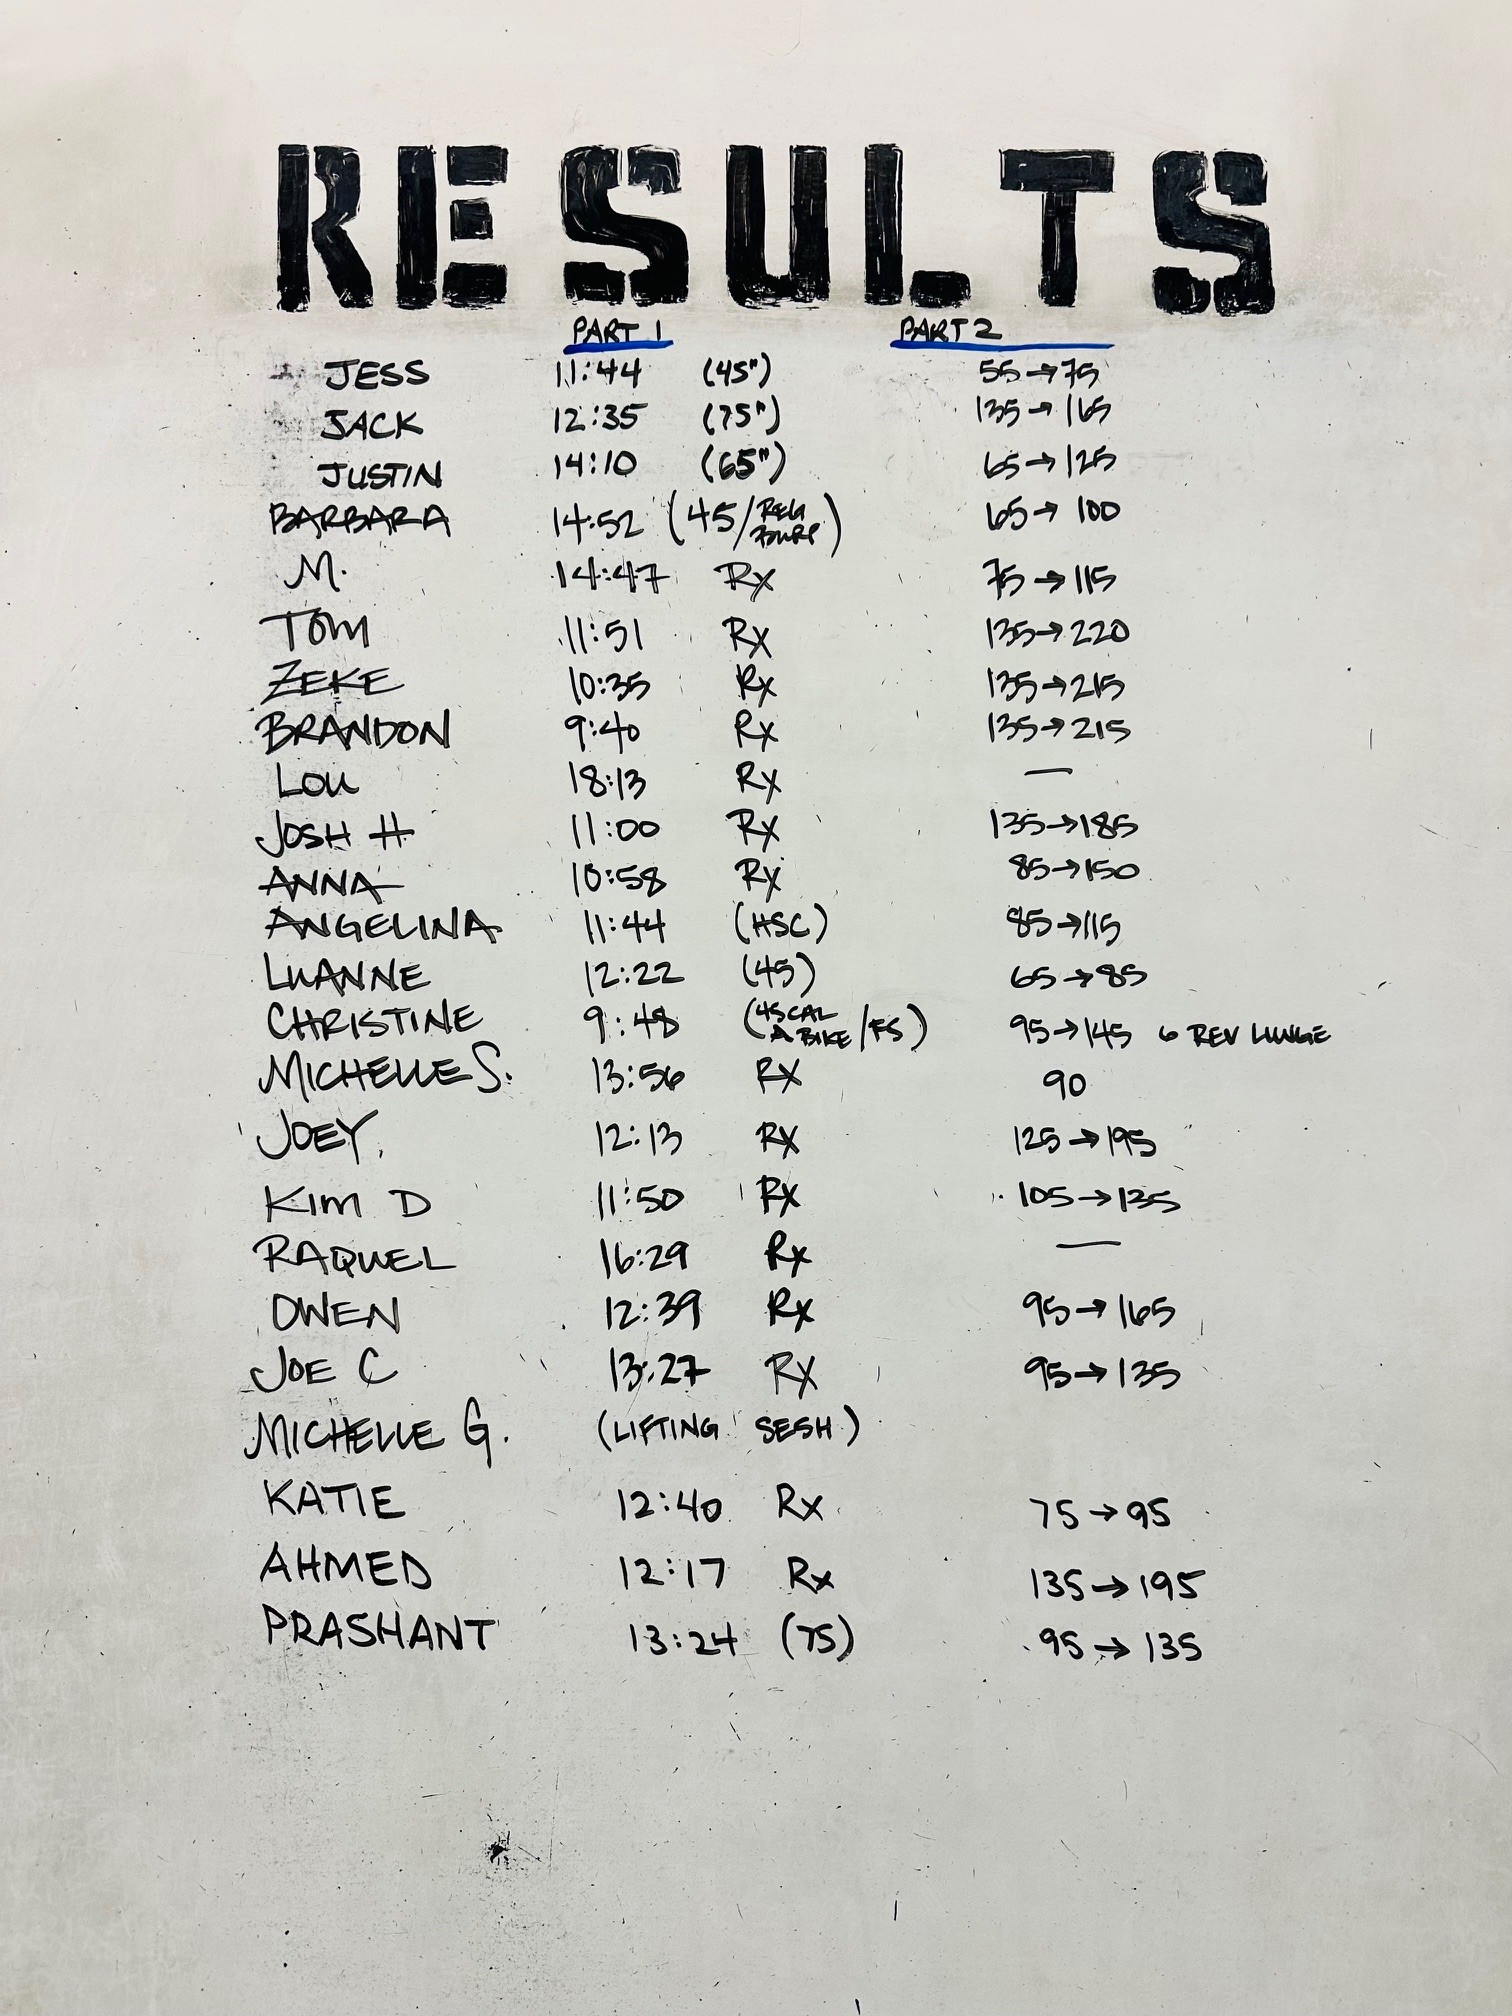 RESULTS
PART 1 PART 2
JESS 11:44 (45") 55→75
JACK 12:35 (75") 135→165
JUSTIN 14:10 (65") 65→125
BARBARA 14:52 (45/REG BURP) 65→100
M. 14:47 Rx 75→115
TOM 11:51 Rx 135→220
ZEKE 10:35 Rx 135→215
BRANDON 9:40 Rx 135→215
LOU 18:13 Rx —
JOSH H 11:00 Rx 135→185
ANNA 10:58 Rx 85→150
ANGELINA 11:44 (HSC) 85→115
LUANNE 12:22 (45) 65→85
CHRISTINE 9:48 (45 CAL A BIKE/FS) 95→145 6 REV LUNGE
MICHELLE S. 13:56 RX 90
JOEY 12:13 RX 125→195
KIM D 11:50 RX 105→135
RAQUEL 16:29 Rx —
OWEN 12:39 Rx 95→165
JOE C 13:27 RX 95→135
MICHELLE G. (LIFTING SESH)
KATIE 12:40 Rx 75→95
AHMED 12:17 Rx 135→195
PRASHANT 13:24 (75) 95→135